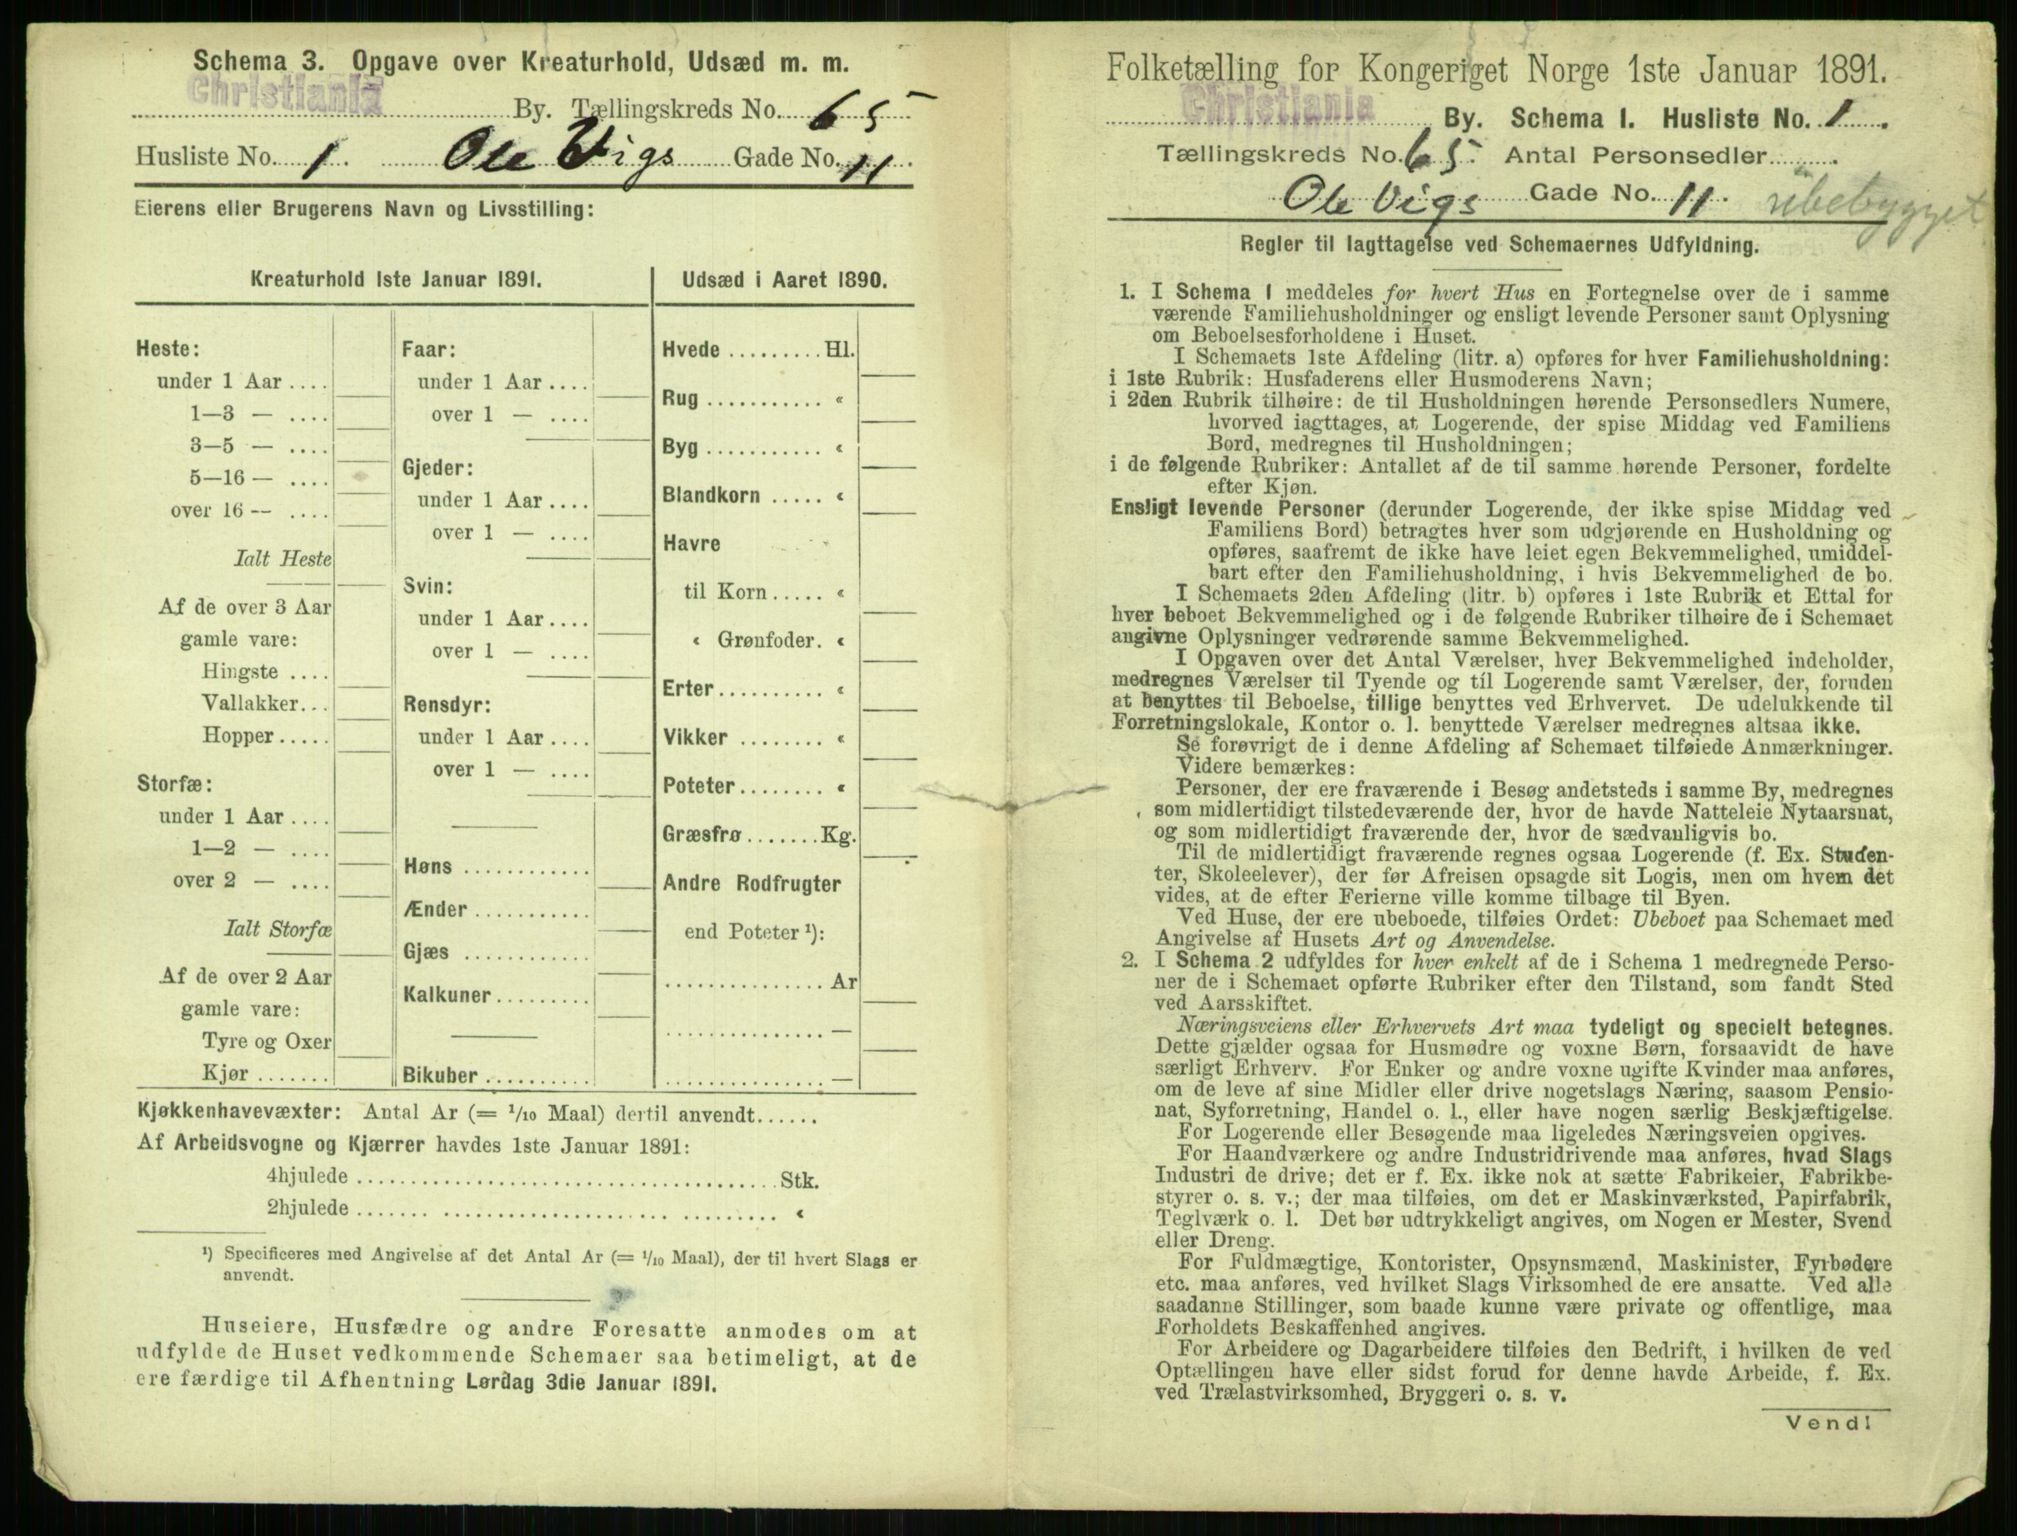 Schema 3. Opgave over Kreaturhold, Udsæd m. m.
Christiania By. Tællingskreds No. 65
Husliste No. 1. Ole Vigs Gade No. 11
Eierens eller Brugerens Navn og Livsstilling:
Kreaturhold 1ste Januar 1891.
Heste:
under 1 Aar ....
1—3 — ....
3—5 — ....
5—16 — ....
over 16 — ....
Ialt Heste
Af de over 3 Aar
gamle vare:
Hingste ....
Vallakker...
Hopper.....
Storfæ:
under 1 Aar ....
1—2 — ....
over 2 — ....
Ialt Storfæ
Af de over 2 Aar
gamle vare:
Tyre og Oxer
Kjør .......
Faar:
under 1 Aar ....
over 1 — ....
Gjeder:
under 1 Aar ....
over 1 — ....
Svin:
under 1 Aar ....
over 1 — ....
Rensdyr:
under 1 Aar ....
over 1 — ....
Høns ............
Ænder ...........
Gjæs ............
Kalkuner.........
Bikuber ..........
Udsæd i Aaret 1890.
Hvede .........Hl.
Rug ........... «
Byg ........... «
Blandkorn ..... «
Havre
til Korn..... «
« Grønfoder. «
Erter.......... «
Vikker ........ «
Poteter........ «
Græsfrø.......Kg.
Andre Rodfrugter
end Poteter ¹):
............... Ar
............... —
............... —
Kjøkkenhavevæxter: Antal Ar (= 1/10 Maal) dertil anvendt......
Af Arbeidsvogne og Kjærrer havdes 1ste Januar 1891:
4hjulede ........................................ Stk.
2hjulede ....... ..................... ......... «
¹) Specificeres med Angivelse af det Antal Ar (= 1/10 Maal), der til hvert Slags er
anvendt.
Huseiere, Husfædre og andre Foresatte anmodes om at
udfylde de Huset vedkommende Schemaer saa betimeligt, at de
ere færdige til Afhentning Lørdag 3die Januar 1891.
Folketælling for Kongeriget Norge 1ste Januar 1891.
Christiania By. Schema 1. Husliste No. 1.
Tællingskreds No. 65. Antal Personsedler........
Ole Vigs Gade No. 11. ubebygget
Regler til Iagttagelse ved Schemaernes Udfyldning.
1. I Schema 1 meddeles for hvert Hus en Fortegnelse over de i samme
værende Familiehusholdninger og ensligt levende Personer samt Oplysning
om Beboelsesforholdene i Huset.
I Schemaets 1ste Afdeling (litr. a) opføres for hver Familiehusholdning:
i 1ste Rubrik: Husfaderens eller Husmoderens Navn;
i 2den Rubrik tilhøire: de til Husholdningen hørende Personsedlers Numere,
hvorved iagttages, at Logerende, der spise Middag ved Familiens
Bord, medregnes til Husholdningen;
i de følgende Rubriker: Antallet af de til samme hørende Personer, fordelte
efter Kjøn.
Ensligt levende Personer (derunder Logerende, der ikke spise Middag ved
Familiens Bord) betragtes hver som udgjørende en Husholdning og
opføres, saafremt de ikke have leiet egen Bekvemmelighed, umiddel-
bart efter den Familiehusholdning, i hvis Bekvemmelighed de bo.
I Schemaets 2den Afdeling (litr. b) opføres i 1ste Rubrik et Ettal for
hver beboet Bekvemmelighed og i de følgende Rubriker tilhøire de i Schemaet
angivne Oplysninger vedrørende samme Bekvemmelighed.
I Opgaven over det Antal Værelser, hver Bekvemmelighed indeholder,
medregnes Værelser til Tyende og til Logerende samt Værelser, der, foruden
at benyttes til Beboelse, tillige benyttes ved Erhvervet. De udelukkende til
Forretningslokale, Kontor o. l. benyttede Værelser medregnes altsaa ikke.
Se forøvrigt de i denne Afdeling af Schemaet tilføiede Anmærkninger.
Videre bemærkes:
Personer, der ere fraværende i Besøg andetsteds i samme By, medregnes
som midlertidigt tilstedeværende der, hvor de havde Natteleie Nytaarsnat,
og som midlertidigt fraværende der, hvor de sædvanligvis bo.
Til de midlertidigt fraværende regnes ogsaa Logerende (f. Ex. Studen-
ter, Skoleelever), der før Afreisen opsagde sit Logis, men om hvem det
vides, at de efter Ferierne ville komme tilbage til Byen.
Ved Huse, der ere ubeboede, tilføies Ordet: Ubeboet paa Schemaet med
Angivelse af Husets Art og Anvendelse.
2. I Schema 2 udfyldes for hver enkelt af de i Schema 1 medregnede Perso-
ner de i Schemaet opførte Rubriker efter den Tilstand, som fandt Sted
ved Aarsskiftet.
Næringsveiens eller Erhvervets Art maa tydeligt og specielt betegnes.
Dette gjælder ogsaa for Husmødre og voxne Børn, forsaavidt de have
særligt Erhverv. For Enker og andre voxne ugifte Kvinder maa anføres,
om de leve af sine Midler eller drive nogetslags Næring, saasom Pensio-
nat, Syforretning, Handel o. l., eller have nogen særlig Beskjæftigelse.
For Logerende eller Besøgende maa ligeledes Næringsveien opgives.
For Haandværkere og andre Industridrivende maa anføres, hvad Slags
Industri de drive; det er f. Ex. ikke nok at sætte Fabrikeier, Fabrikbe-
styrer o. s. v.; der maa tilføies, om det er Maskinværksted, Papirfabrik,
Teglværk o. l. Det bør udtrykkeligt angives, om Nogen er Mester, Svend
eller Dreng.
For Fuldmægtige, Kontorister, Opsynsmænd, Maskinister, Fyrbødere
etc. maa anføres, ved hvilket Slags Virksomhed de ere ansatte. Ved alle
saadanne Stillinger, som baade kunne være private og offentlige, maa
Forholdets Beskaffenhed angives.
For Arbeidere og Dagarbeidere tilføies den Bedrift, i hvilken de ved
Optællingen have eller sidst forud for denne havde Arbeide, f. Ex.
ved Trælastvirksomhed, Bryggeri o. s. v.
Vend!